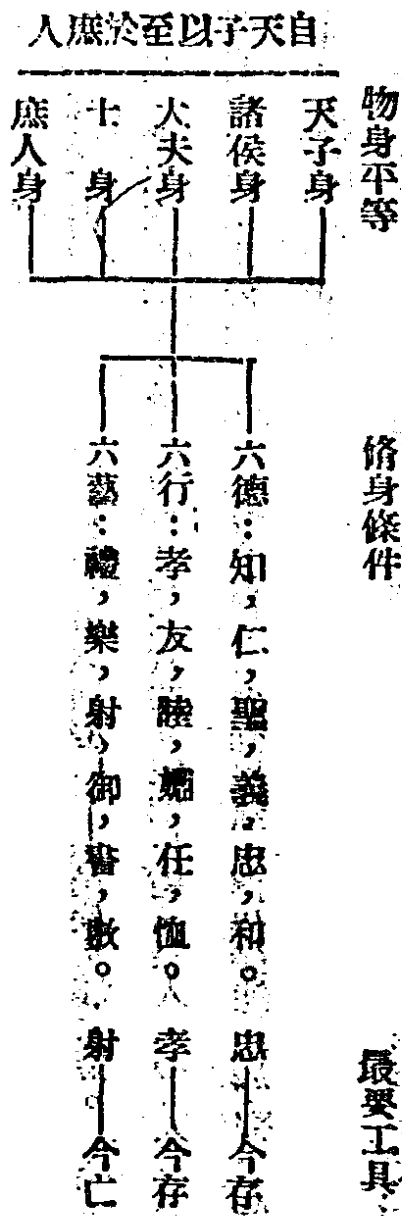 自天子以至於庶人
物身平等
天子身
諸侯身
大夫身
士身
庶人身
脩身條件
六德：知，仁，聖，義，忠，和。
六行：孝，友，睦，婣，任，恤。
六藝：禮，樂，射，御，書，數。
最要工具
忠——今存
孝——今存
射——今亡